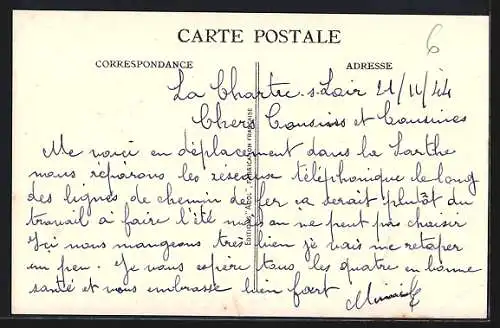 CARTE POSTALE
CORRESPONDANCE
ADRESSE
6
La Chartre s. Loir 21/11/44
Chers Cousins et Cousines
Me voici en déplacement dans la Sarthe
nous réparons les réseaux téléphonique le long
des lignes de chemin de fer ça serait plutôt du
travail à faire l'été mais on ne peut pas choisir
Ici nous mangeons très bien je vais me retaper
un peu. Je vous espère tous les quatre en bonne
santé et vous embrasse bien fort
FABRICATION FRANÇAISE